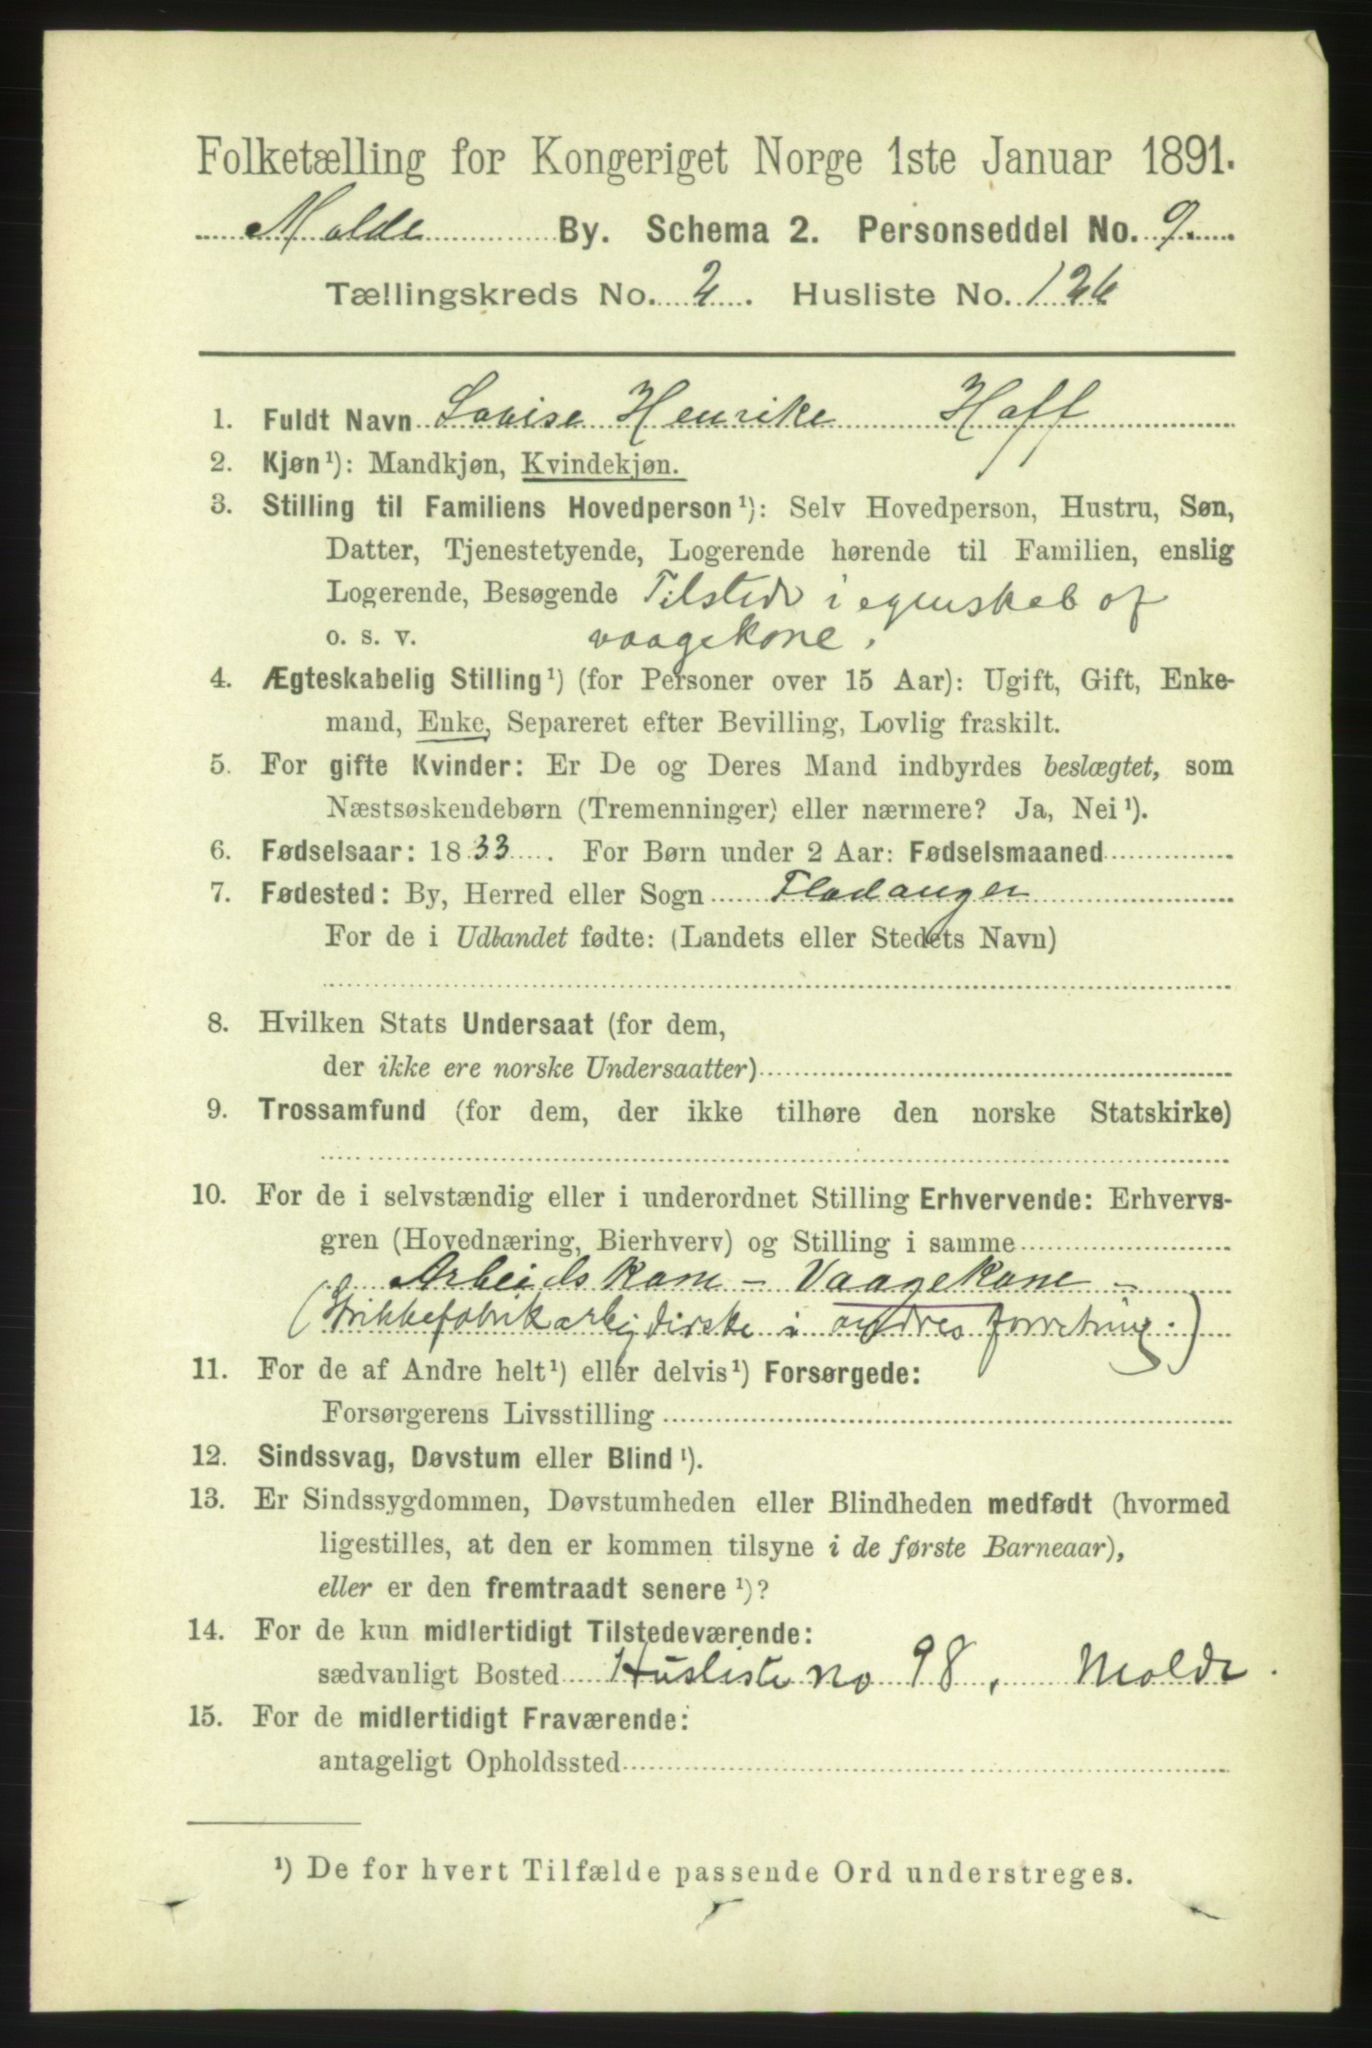 Folketælling for Kongeriget Norge 1ste Januar 1891.
Molde By. Schema 2. Personseddel No. 9.
Tællingskreds No. 2. Husliste No. 126
1. Fuldt Navn Lovise Henrike Hoff
2. Kjøn¹): Mandkjøn, Kvindekjøn.
3. Stilling til Familiens Hovedperson¹): Selv Hovedperson, Hustru, Søn,
Datter, Tjenestetyende, Logerende hørende til Familien, enslig
Logerende, Besøgende Tilstede i egenskab af
o. s. v. vaagekone.
4. Ægteskabelig Stilling¹) (for Personer over 15 Aar): Ugift, Gift, Enke-
mand, Enke, Separeret efter Bevilling, Lovlig fraskilt.
5. For gifte Kvinder: Er De og Deres Mand indbyrdes beslægtet, som
Næstsøskendebørn (Tremenninger) eller nærmere? Ja, Nei¹).
6. Fødselsaar: 1833. For Børn under 2 Aar: Fødselsmaaned
7. Fødested: By, Herred eller Sogn Fladanger
For de i Udlandet fødte: (Landets eller Stedets Navn)
8. Hvilken Stats Undersaat (for dem,
der ikke ere norske Undersaatter)
9. Trossamfund (for dem, der ikke tilhøre den norske Statskirke)
10. For de i selvstændig eller i underordnet Stilling Erhvervende: Erhvervs-
gren (Hovednæring, Bierhverv) og Stilling i samme
Arbeidskone - Vaagekone -
(Strikkefabrikarbejderske i andres forretning.)
11. For de af Andre helt¹) eller delvis¹) Forsørgede:
Forsørgerens Livsstilling
12. Sindssvag, Døvstum eller Blind¹).
13. Er Sindssygdommen, Døvstumheden eller Blindheden medfødt (hvormed
ligestilles, at den er kommen tilsyne i de første Barneaar),
eller er den fremtraadt senere¹)?
14. For de kun midlertidigt Tilstedeværende:
sædvanligt Bosted Husliste no 98, Molde.
15. For de midlertidigt Fraværende:
antageligt Opholdssted
¹) De for hvert Tilfælde passende Ord understreges.